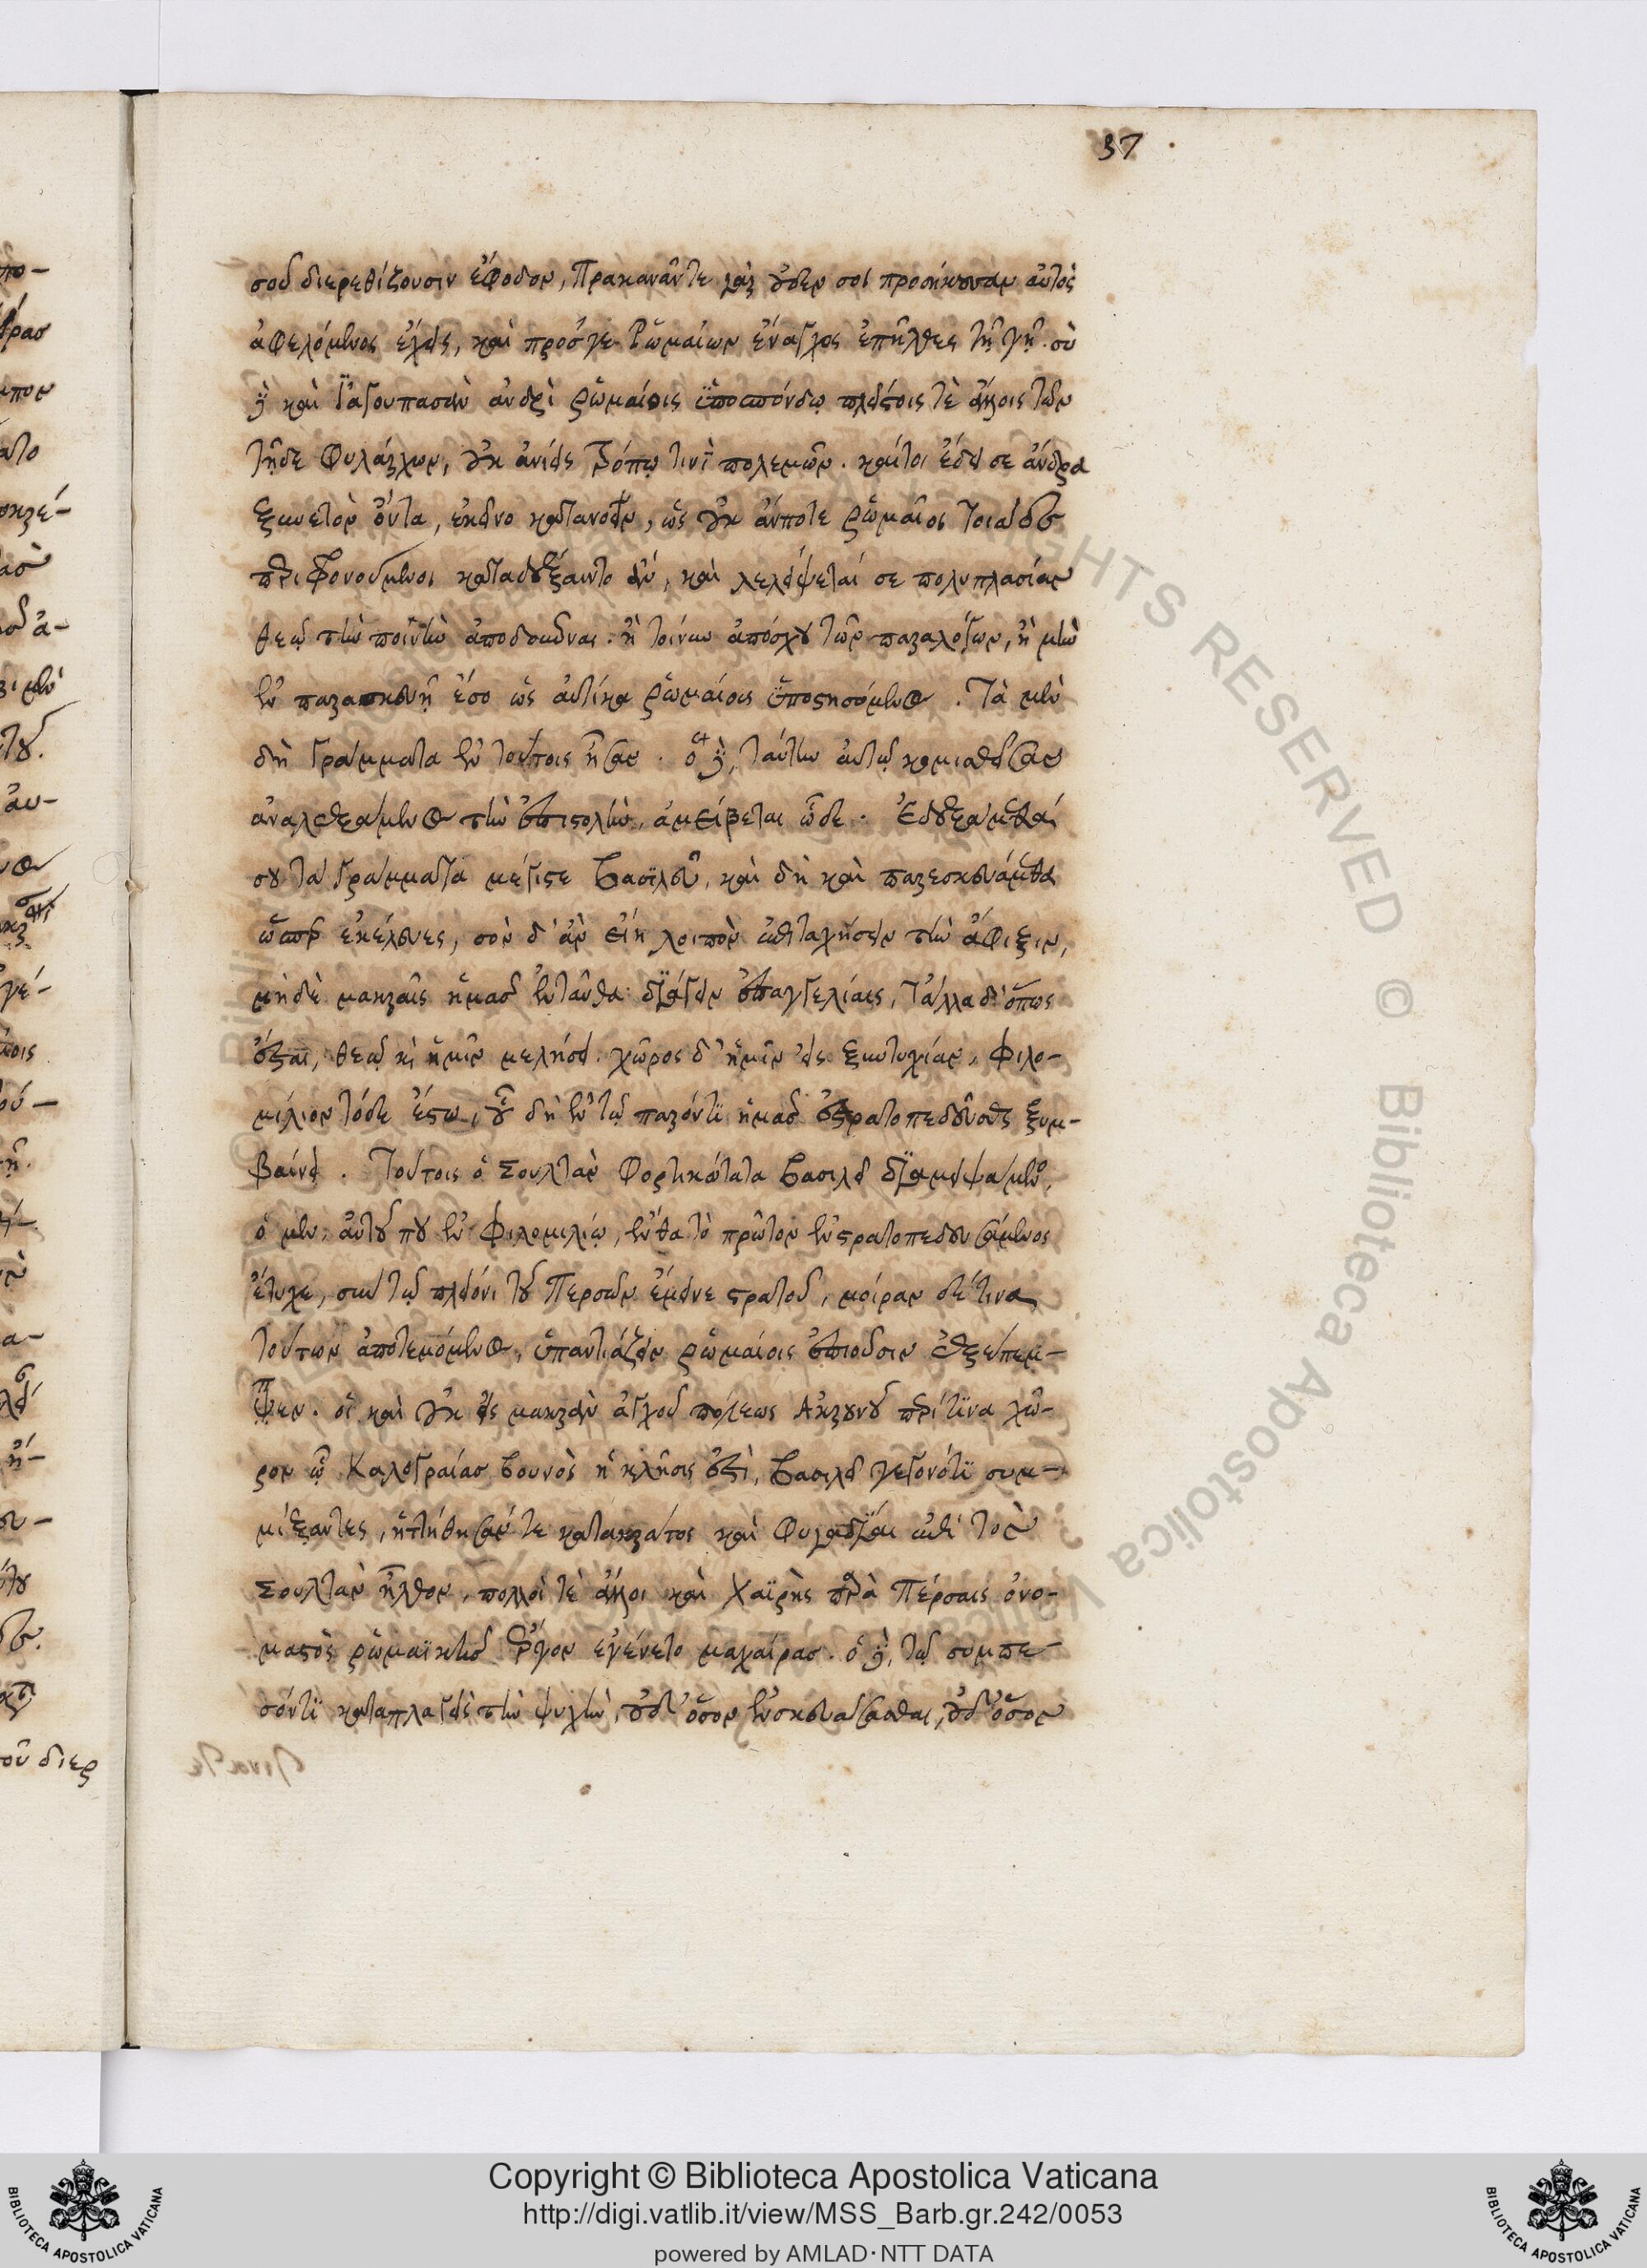 37
σοῦ διερεθίζουσιν ἔφοδον, Πρακανᾶν τε γὰρ οὐδέν σοι προσήκουσαν αὐτὸς
ἀφελόμενος ἔχεις, καὶ πρόσγε Ῥωμαίων ἔναγχος ἐπῆλθες τῇ γῇ. σὺ
δὲ καὶ Ἰαγουπασὰν ἀνδρὶ ῥωμαίοις ὑποσπόνδῳ πλείστοις τὲ ἄλλοις τῶν
τῇδε φυλάρχων, οὐκ ἀνίεις τρόπῳ τινὶ πολεμῶν. καίτοι ἔδει σε ἄνδρα
ξυνετὸν ὄντα, ἐκεῖνο κατανοεῖν, ὡς οὐκ ἄν ποτε ῥωμαῖοι τοιαῦτα
περιφρονούμενοι καταδέξαιντο ἂν, καὶ λελείψεταί σε πολυπλασίαν
θεῷ τὴν ποινὴν ἀποδοῦναι. ἢ τοίνυν ἀπόσχου τῶν παραλόγων, ἢ μὴν
ἐν παρασκευῇ ἔσο ὡς αὐτίκα ῥωμαίοις ὑποστησόμενος. Τὰ μὲν
δὴ γράμματα ἐν τούτοις ἦσαν. ὁ δὲ, ταύτην αὐτῷ κομισθεῖσαν
ἀναλεξάμενος τὴν ἐπιστολὴν, ἀμείβεται ὧδε. Ἐδεξάμεθά
σου τὰ γράμματα μέγιστε βασιλεῦ, καὶ δὴ καὶ παρεσκευάμεθα
ὥσπερ ἐκέλευες, σὸν δ' ἂν εἴη λοιπὸν ἐπιταχύνειν τὴν ἄφιξιν,
μηδὲ μακραῖς ἡμᾶς ἐνταῦθα διάγειν ἐπαγγελίαις, τἄλλα δ' ὅπως
ἕξει, θεῷ καὶ ἡμῖν μελήσει. χῶρος δ' ἡμῖν εἰς ξυντυχίαν, Φιλο-
μίλιον τόδε ἔστω, οὗ δὴ ἐν τῷ παρόντι ἡμᾶς ἐστρατοπεδευκέναι ξυμ-
βαίνει. Τούτοις ὁ Σουλτὰν φορτικώτατα βασιλεῖ διαμειψάμενος,
ὁ μὲν, αὐτοῦ που ἐν Φιλομιλίῳ, ἔνθα τὸ πρῶτον ἐνστρατοπεδευσάμενος
ἔτυχε, σὺν τῷ πλείονι τοῦ Περσῶν ἔμεινε στρατοῦ, μοῖραν δέ τινα
τούτων ἀποτεμόμενος, ὑπαντιάζειν ῥωμαίοις ἐπιοῦσιν ἐξέπεμ-
ψεν. οἳ καὶ οὐκ εἰς μακρὰν ἀγχοῦ πόλεως Ἀκρουνοῦ περί τινα χῶ-
ρον ᾧ Καλογραίας βουνὸς ἡ κλῆσις ἐστὶ, βασιλεῖ γεγονότι συμ-
μίξαντες, ἡττήθησάν τε κατακράτος καὶ φυγάδες ἐπὶ τὸν
Σουλτὰν ἦλθον, πολλοί τὲ ἄλλοι καὶ Χαΐρης παρὰ Πέρσαις ὀνο-
μαστὸς ῥωμαϊκῆς ἔργον ἐγένετο μαχαίρας. ὁ δὲ, τῷ συμπε-
σόντι καταπλαγεὶς τὴν ψυχὴν, οὐδ' ὅσον ἐνσκευάσασθαι, οὐδ' ὅσον
Copyright © Biblioteca Apostolica Vaticana
http://digi.vatlib.it/view/MSS_Barb.gr.242/0053
powered by AMLAD·NTT DATA